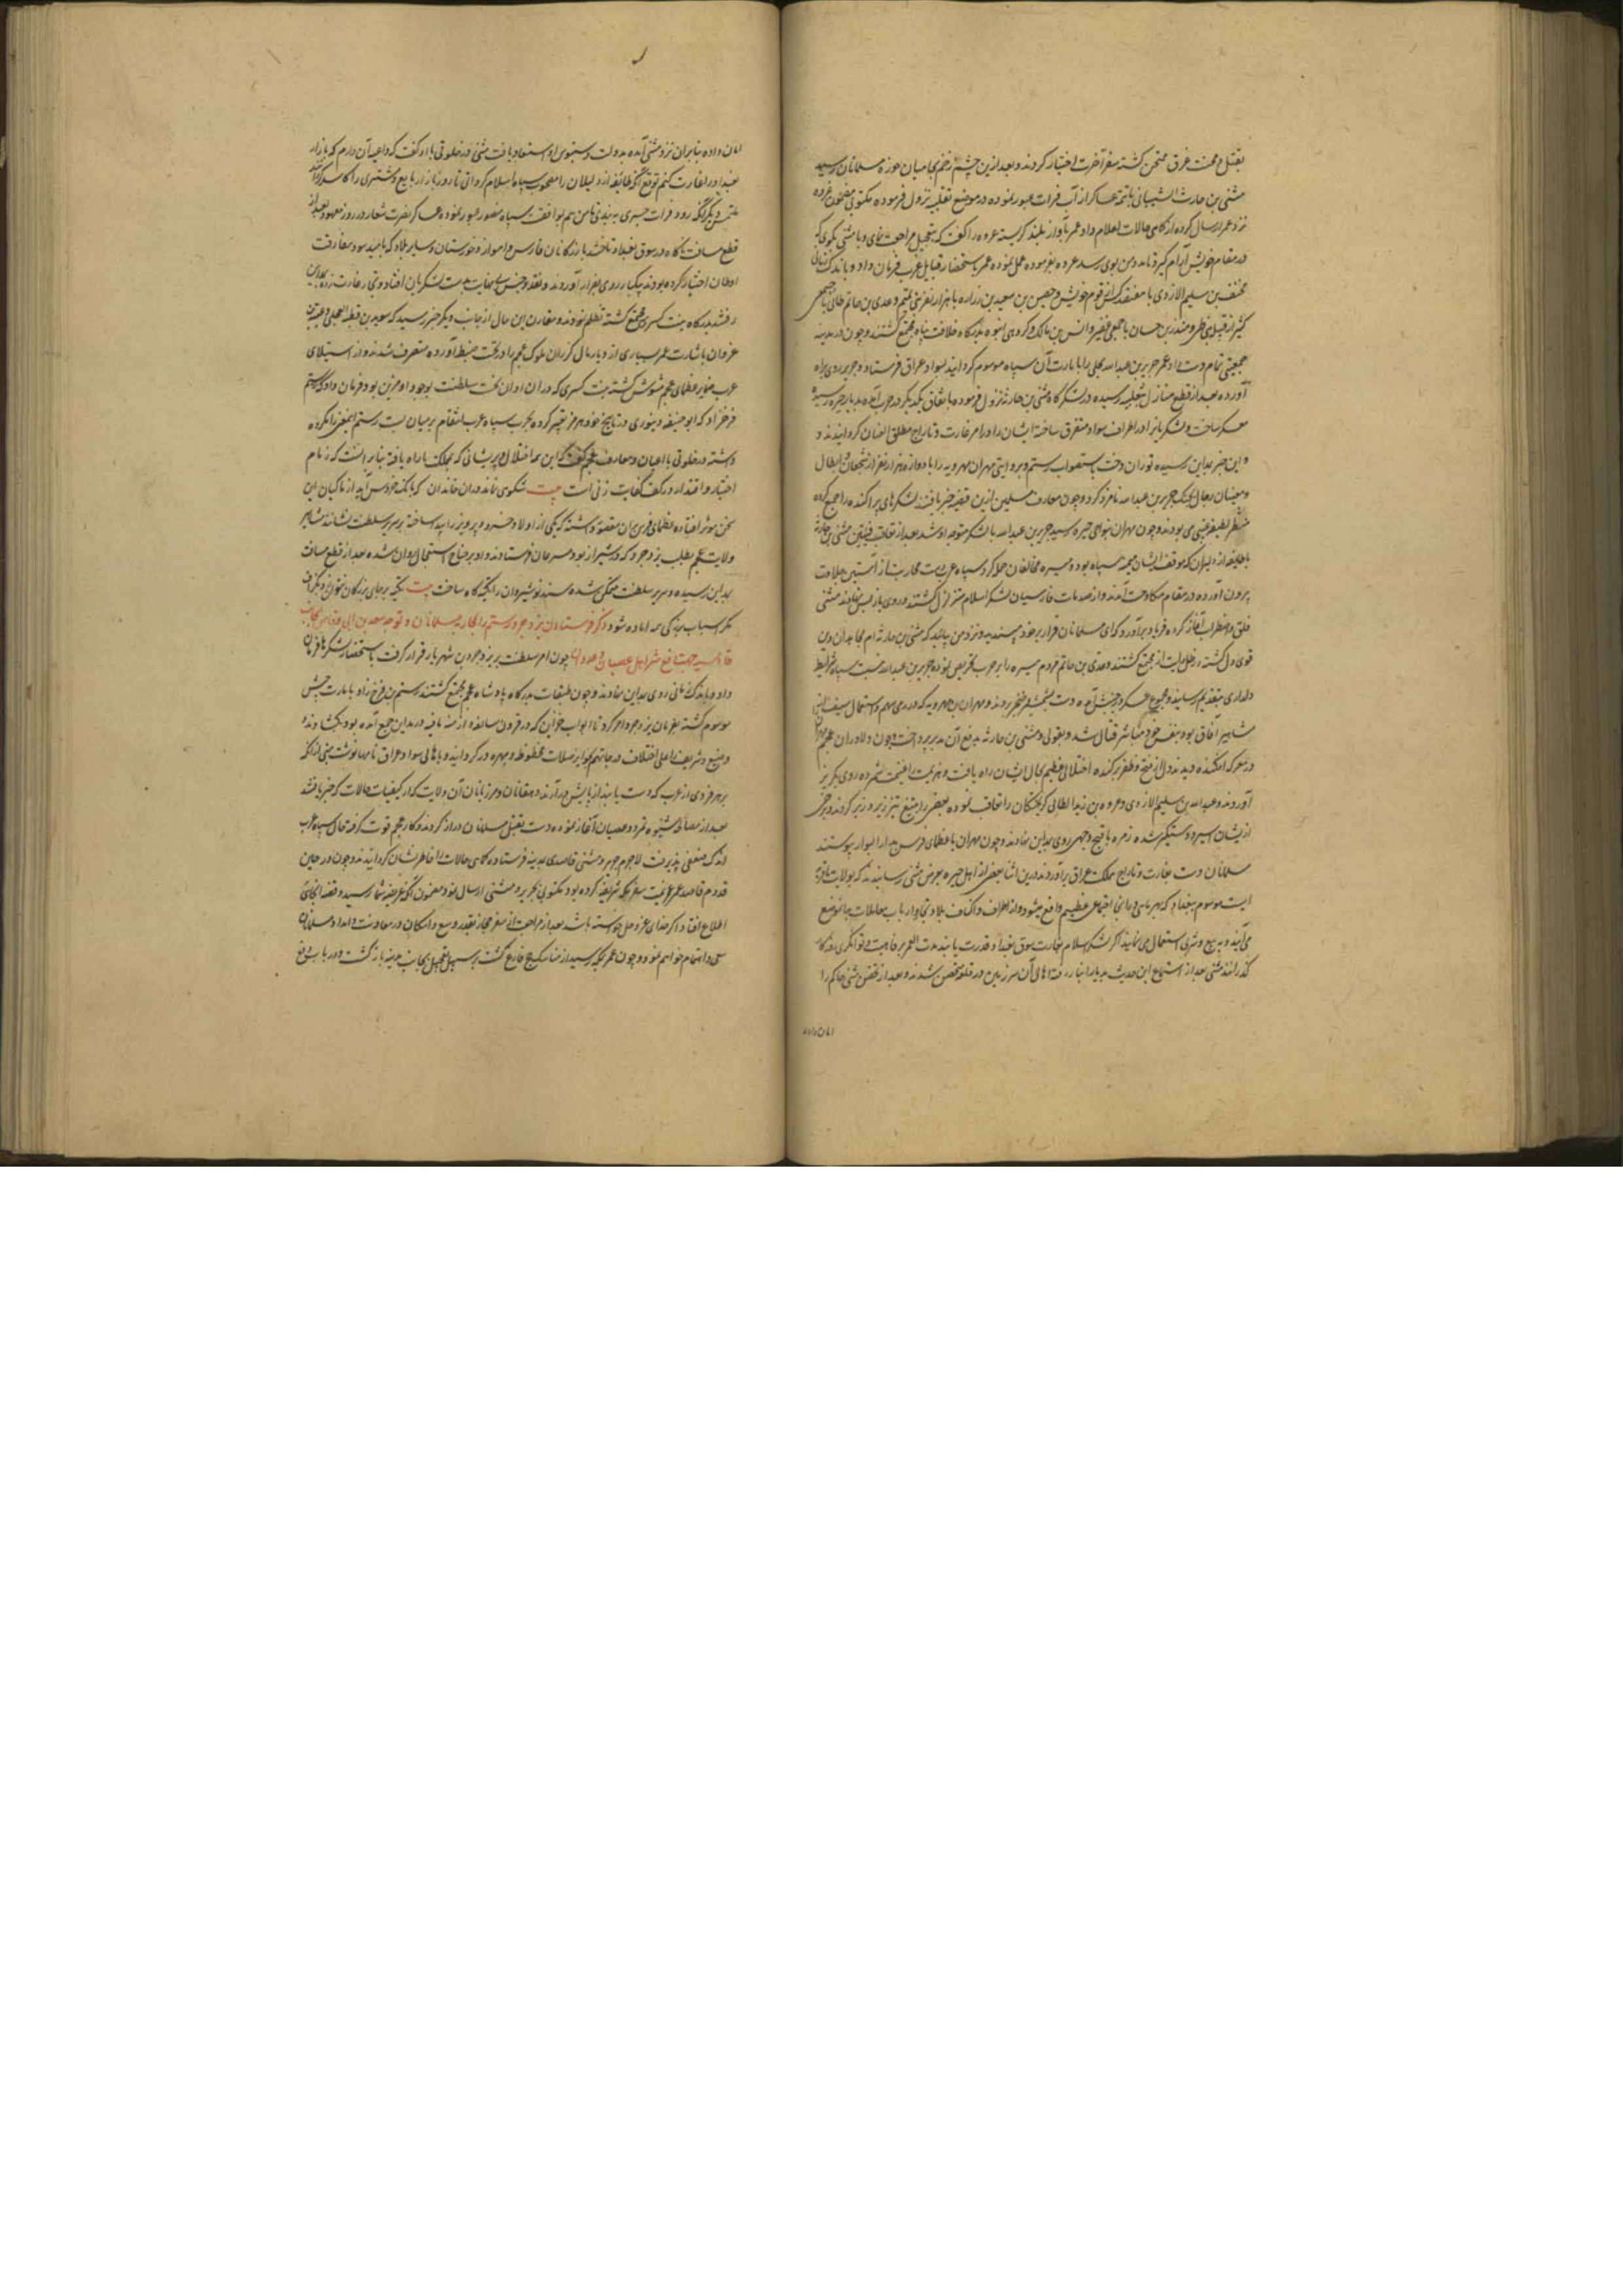 بقتل و محنت غرق ممتحن گشته سفر آخرت اختیار کردند و بعد ازین چشم زخم که بمیان حوزه مسلمانان رسید
مثنی بن حارث الشیبانی با تتمه عساکر از آب فرات عبور نموده در موضع ثعلبیه نزول فرمود و مکتوبی مصحوب عروه
نزد عمر ارسال کرده از کماهی حالات اعلام داد عمر بآواز بلند گریسته عروه را گفت که بتعجیل مراجعت نمای و با مثنی بگوی که
در مقام خویش آرام گیرد تا مدد من بوی رسد عروه بفرموده عمل نموده عمر باستحضار قبایل عرب فرمان داد و باندک زمانی
مخنف بن سلیم الازدی با هفتصد کس از قوم خویش و حصین بن معبد بن زراره با هزار نفر بنی تمیم و عدی بن حاتم طائی با جمعی
کثیر از قبیله طی و منذر بن حسان با جمعی و انس بن مالک و گروهی انبوه بدرگاه خلافت پناه مجتمع گشتند و چون در مدینه
جمعیتی تمام دست داد عمر جریر بن عبدالله بجلی را بامارت آن سپاه موسوم گردانید بسواد عراق فرستاد و جریر روی براه
آورده بعد از قطع منازل بثعلبیه رسیده در لشکرگاه مثنی بن حارثه نزول فرموده باتفاق یکدیگر در حرب آمده بدیار حیره رسید
معسکر ساخت و لشکریانرا در اطراف سواد متفرق ساخته ایشان را در امر غارت و تاراج مطلق العنان گردانیدند و
این خبر بمداین رسیده توران دخت باستصواب رستم و بروایتی مهران مهرویه را با دوازده هزار نفر از شجعان و ابطال
بجنگ جریر بن عبدالله نامزد کرد و چون معارف مسلمین ازین قضیه خبر یافتند لشکرهای پراکنده را جمع کرده
منتظر لطیفه غیبی می بودند و چون مهران بنواحی حیره رسید جریر بن عبدالله با لشکر متوجه او شد بعد از تلاقی فئتین مثنی بن حارثه
با طایفه از دلیران که موقف ایشان میمنه سپاه بود و میسره مخالفان حمله کرد و سپاه عرب دست محاربت از آستین جلادت
بیرون آورده در مقام مکاوحت آمدند و از صدمات فارسیان لشکر اسلام متزلزل گشتند و روی باز پس نهادند مثنی
قلق و اضطراب آغاز کرده فریاد برآورد که ای مسلمانان فرار بر خود مپسندید و نزد من بیائید که مثنی بن حارثه ام مجاهدان دین
قوی دل گشته در ظل رایت او مجتمع گشتند و عدی بن حاتم مردم میسره را بر حرب تحریض نموده و جریر بن عبدالله نسبت بسپاه شرایط
دلداری بتقدیم رسانید و مجموع عسکر در جنبش آمده دست بشمشیر و خنجر بردند و مهران بن مهرویه که در رمی سهم و استعمال سیف
مشاهیر آفاق بود بنفس خود مباشر قتال شد و بقولی مثنی بن حارثه بدفع آن مدبر پرداخت و چون دلاوران عجم مهران را
در معرکه افکنده دیدند دل از فتح و ظفر برکنده اختلالی عظیم بحال ایشان راه یافت و هزیمت را غنیمت شمرده روی بگریز
آوردند و عبدالله بن سلیم الازدی و عروه بن زید الطائی گریختگان را تعاقب نموده بعضی را بتیغ تیز زیر و زبر کردند و برخی
از ایشان اسیر و دستگیر شده زمره باقبح وجهی روی بمداین نهادند و چون مهران با عظمای فرس بدار البوار پیوستند
مسلمانان دست بغارت و تاراج مملکت عراق برآوردند درین اثنا بعضی از اهل حیره بعرض مثنی رسانیدند که بولایت ما قریه
ایست موسوم ببغداد که بهر ماهی در آنجا اجتماعی عظیم واقع میشود و از اطراف و اکناف بلاد تجار و ارباب معاملات بدانموضع
می آیند و به بیع و شری استعمال می نمایند اگر لشکر اسلام بغارت سوق بغداد قدرت یابند مدت العمر برفاهیت و توانگری روزگار
گذرانند مثنی بعد از استماع این حدیث بدیار انبار رفته اهالی آن سرزمین در قلعه متحصن شدند و بعد از تحصن مثنی حاکم را
امان داده
امان داده بنابران نزد مثنی آمده بدولت دستبوس او استسعاد یافت مثنی در خلوتی با او گفت که داعیه آن دارم که بازار
بغداد را غارت کنم توقع آنکه طایفه از دلیلان را مصحوب سپاه اسلام گردانی تا روز بازار بایع و مشتری را کاسد گردانند
ملتمس دیگر آنکه بر رود فرات جسری به بندی تا من هم بموافقت سپاه منصور عبور نموده عساکر نصرت شعار در روز معهود بعد از
قطع مسافت ناگاه در سوق بغداد تاختند بازرگانان فارس و اهواز و خوزستان و سایر بلاد که بامید سود مفارقت
اوطان اختیار کرده بودند بیکبار روی بفرار آوردند و نقد و جنس بی نهایت بدست لشکریان افتاد و تجار غارت زده بمداین
رفتند بدرگاه بنت کسری مجتمع گشته تظلم نمودند و مقارن این حال از جانب دیگر خبر رسید که سوید بن قطبه العجلی و عتبه بن
غزوان باشارت عمر بسیاری از دیار مال گزران ملوک عجم را در تحت ضبط آورده متصرف شدند و از استیلای
عرب ضمایر عظمای عجم مشوش گشته بنت کسری که در ان اوان تخت سلطنت بوجود او مزین بود فرمان داد که رستم
فرخزاد که ابو حنیفه دینوری در تاریخ خود بهرمز تعبیر کرده بحرب سپاه عرب انتقام بر میان بست رستم اینمعنی را مکروه
داشته در خلوتی با اعیان و معارف عجم گفت که این همه اختلال و پریشانی که بملک ما راه یافته بنابر آنست که زمام
اختیار و اقتدار در کف کفایت زنی است بیت شکوهی نماند در ان خاندان که بانگ خروس آید از ماکیان این
سخن موثر افتاده عظمای فرس متفق گشته که یکی از اولاد خسرو پرویز را پیدا ساخته بر سریر سلطنت نشانند مشاهیر
ولایت عجم بطلب یزدجرد که در شیراز بود مسرعان فرستادند و او بر جناح استعجال روان شده بعد از قطع مسافت
بمداین رسیده و سریر سلطنت متکی شده مسند نوشیروان را تکیه گاه ساخت بیت تکیه بر جای بزرگان نتوان زد بگزاف
مگر اسباب بزرگی همه اماده شود ذکر فرستادن یزدجرد رستم را بمحاربه مسلمانان و توجه سعد بن ابی وقاص بجانب
قادسیه جهت دفع شر اهل عصیان و عدوان چون امر سلطنت بر یزدجرد بن شهریار قرار گرفت باستحضار لشکرها فرمان
داد و باندک زمانی روی بمداین نهادند و چون طبقات بدرگاه پادشاه عجم مجتمع گشتند رستم بن فرخ زاد بامارت جیش
موسوم گشته بفرمان یزدجرد امر کرد تا ابواب خزاین که در قرون سالفه و ازمنه ماضیه در مداین جمع آمده بود بگشادند
وضیع و شریف را علی اختلاف درجاتهم بمواید صلات محظوظ و بهره ور گردانید و باهالی سواد عراق نامها نوشت مبنی از آنکه
بر هر فردی از عرب که دست یابند از پایش در آرند دهقانان و مرزبانان آن ولایت که از کیفیات حالات که خبر یافتند
بعد از مصالحه شیوه تمرد و عصیان آغاز نموده دست بقتل مسلمانان دراز کردند و کار عجم قوت گرفته حال سپاه عرب
اندک ضعفی پذیرفت لاجرم جریر و مثنی قاصدی بمدینه فرستاده کماهی حالات را خاطر نشان گردانیدند و چون در حین
قدوم قاصد عمر عزیمت سفر مکه شریفه کرده بود مکتوبی بجریر و مثنی ارسال نمود مضمون آنکه عریضه شما رسید و قضیه آنجائی
اطلاع افتاد اگر خدای عز و جل خواسته باشد بعد از مراجعت از سفر حجاز بقدر وسع و امکان در معاونت و امداد مسلمانان
سعی و اهتمام خواهم نمود و چون عمر بمکه رسید از مناسک حج فارغ گشت بر سبیل تعجیل بجانب مدینه بازگشت و در باب دفع